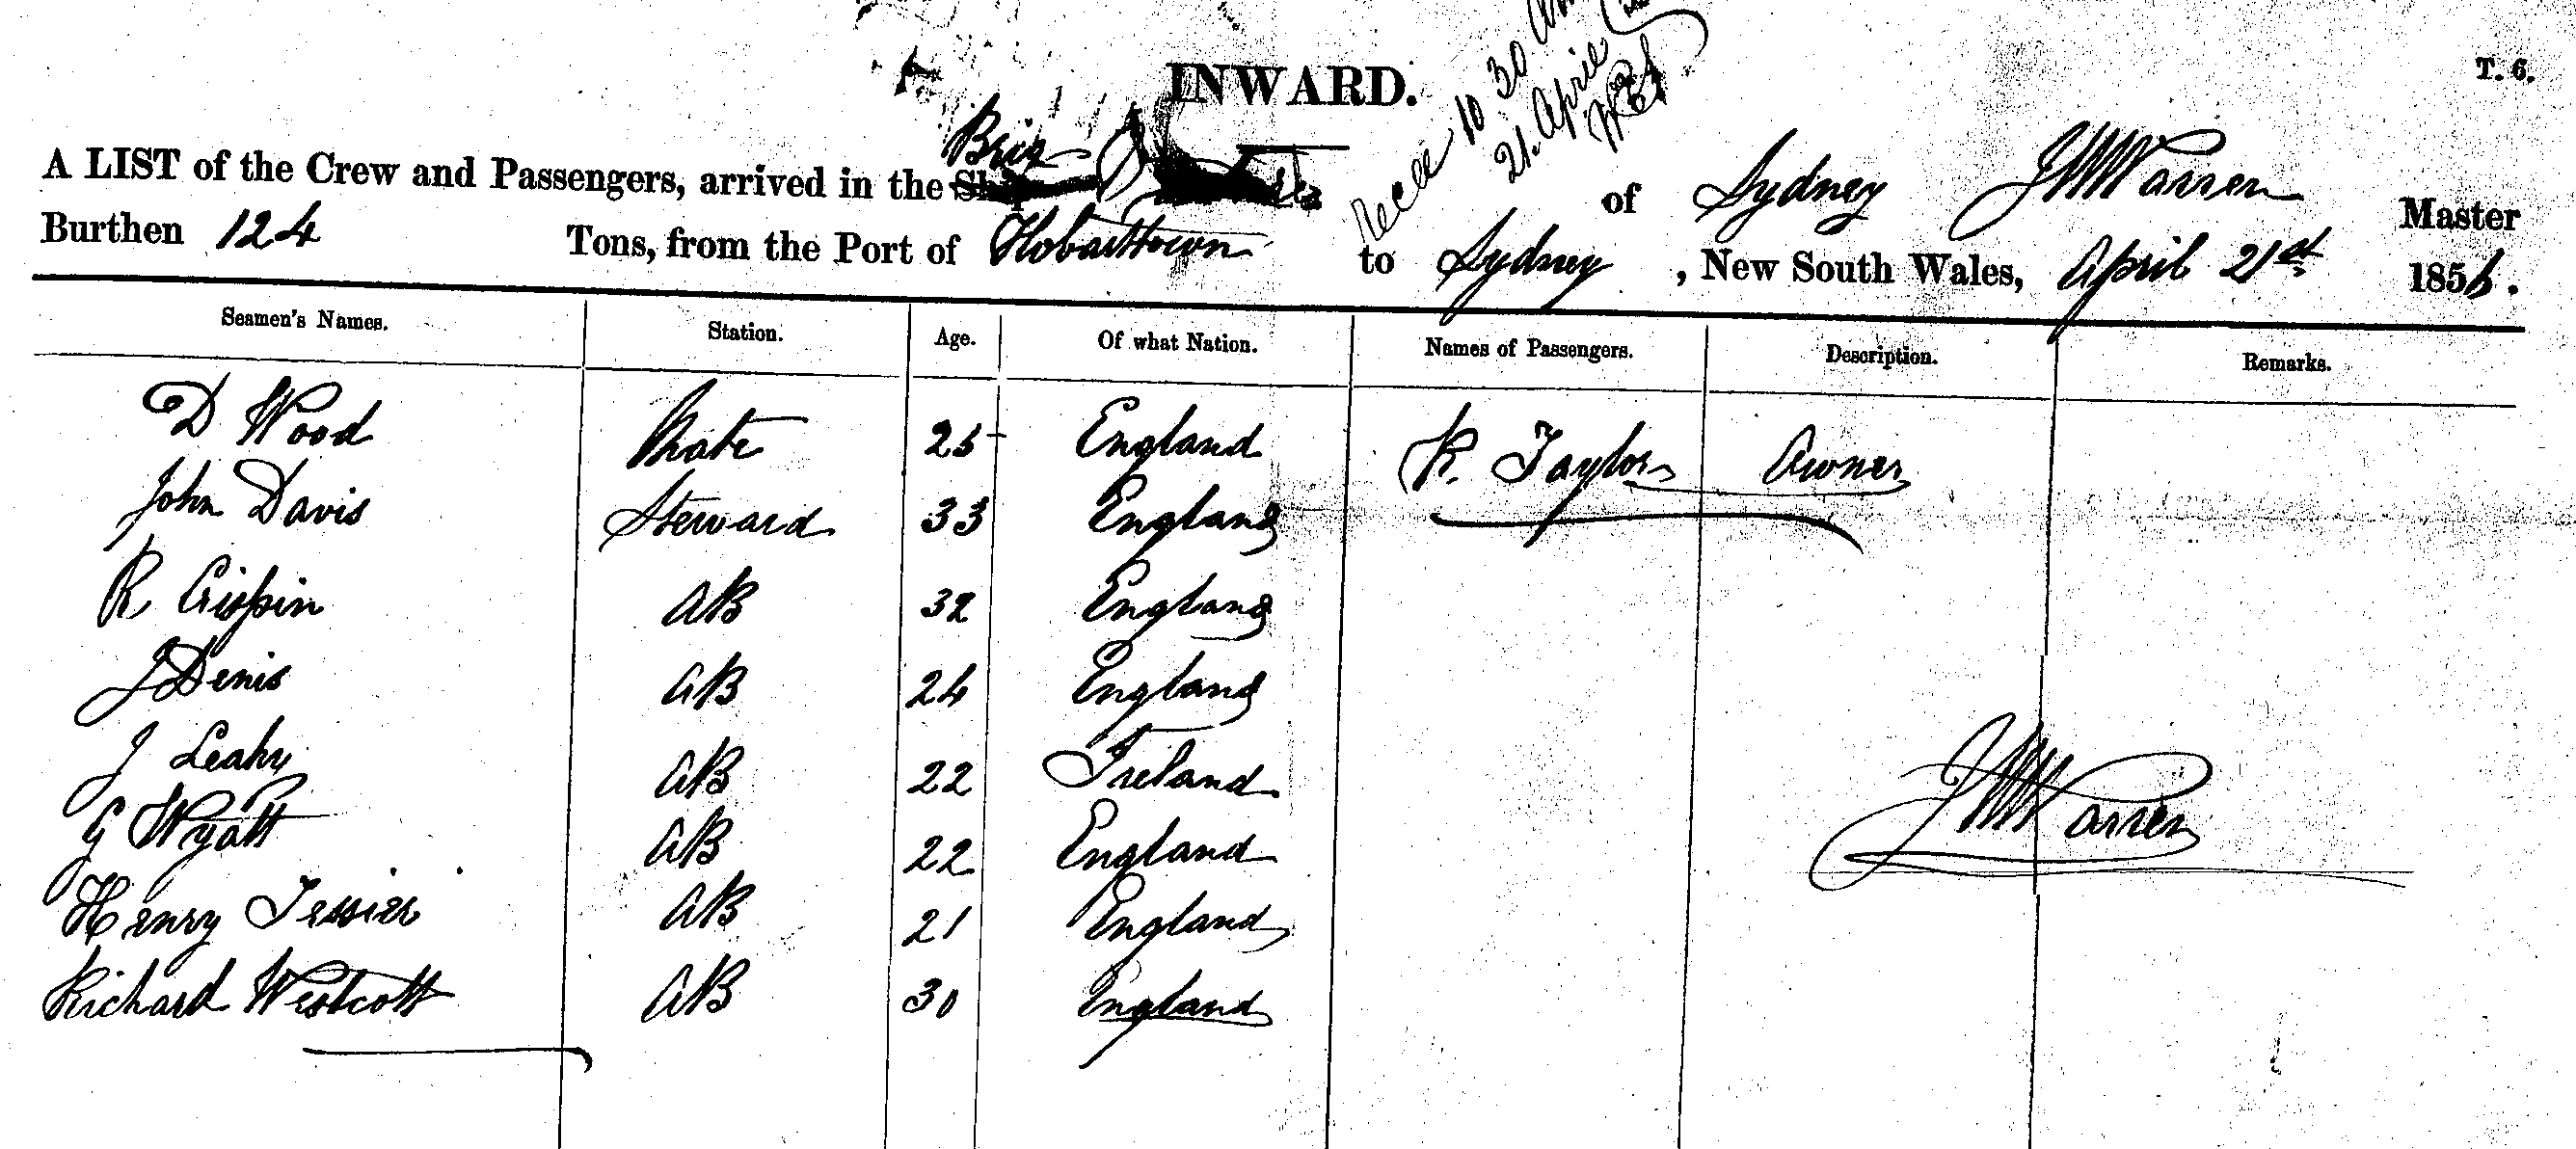 INWARD.
T. 6.
Recd 10 30 am
21. April
A LIST of the Crew and Passengers, arrived in the Ship Brig of Sydney J W Warren Master
Burthen 124 Tons, from the Port of Hobarttown to Sydney, New South Wales, April 21st 1856.
Seamen's Names. Station. Age. Of what Nation. Names of Passengers. Description. Remarks.
D Wood Mate 25 England R. Taylor Owner
John Davis Steward 33 England
R Crispin AB 32 England
J Denis AB 24 England
J Leahy AB 22 Ireland
G Wyatt AB 22 England
J W Warren
Henry Tessier AB 21 England
Richard Westcott AB 30 England